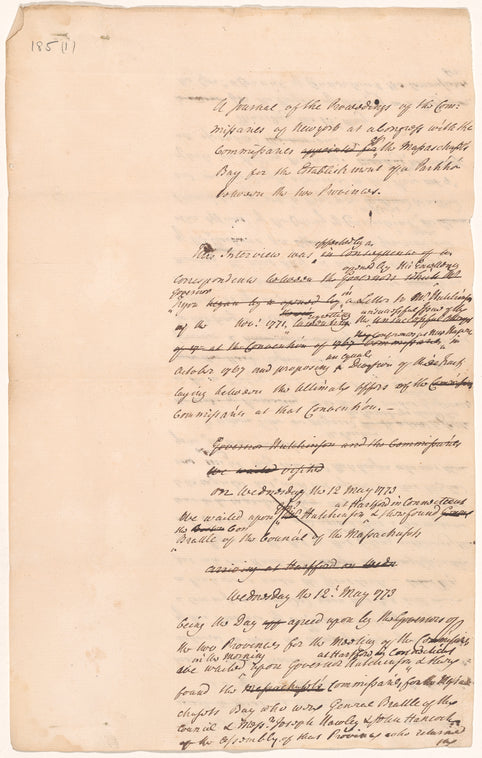 185 (1)
A Journal of the Proceedings of the Com-
missaries of New york at a Congress with the
Commissaries appointed for of the Massachusetts
Bay for the Establishment of a Partition
between the two Provinces.
effected by a
This Interview was in Consequence of a
opened by His Excellency
correspondence between the Governors
Governor
Tryon began by a opened by in a Letter to Mr Hutchinson
unsuccessful Issue of the
of the Nov. 1771,
of at the Convention of 1767 Commissaries in
an equal
October 1767 and proposing a Division of the Tract
laying between the Ultimate offers of the
Commissaries at that Convention. —
Governor Hutchinson and the Commissaries
We waited visited
on Wednesday the 12 May 1773
at Hartford in Connecticut
We waited upon Hutchinson & there found General
Brattle of the Council of the Massachusetts
arriving at Hartford on Wedn
Wednesday the 12th May 1773
being the Day agreed upon by the Governors of
the two Provinces for the Meeting of the Commissaries
in the morning at Hartford in Connecticut
we waited upon Governor Hutchinson & there
found the Massachusetts Commissaries for the Massa
chusetts Bay who were General Brattle of the
Council & Messrs Joseph Hawley & John Hancock
of the Assembly of that Province who returned
the